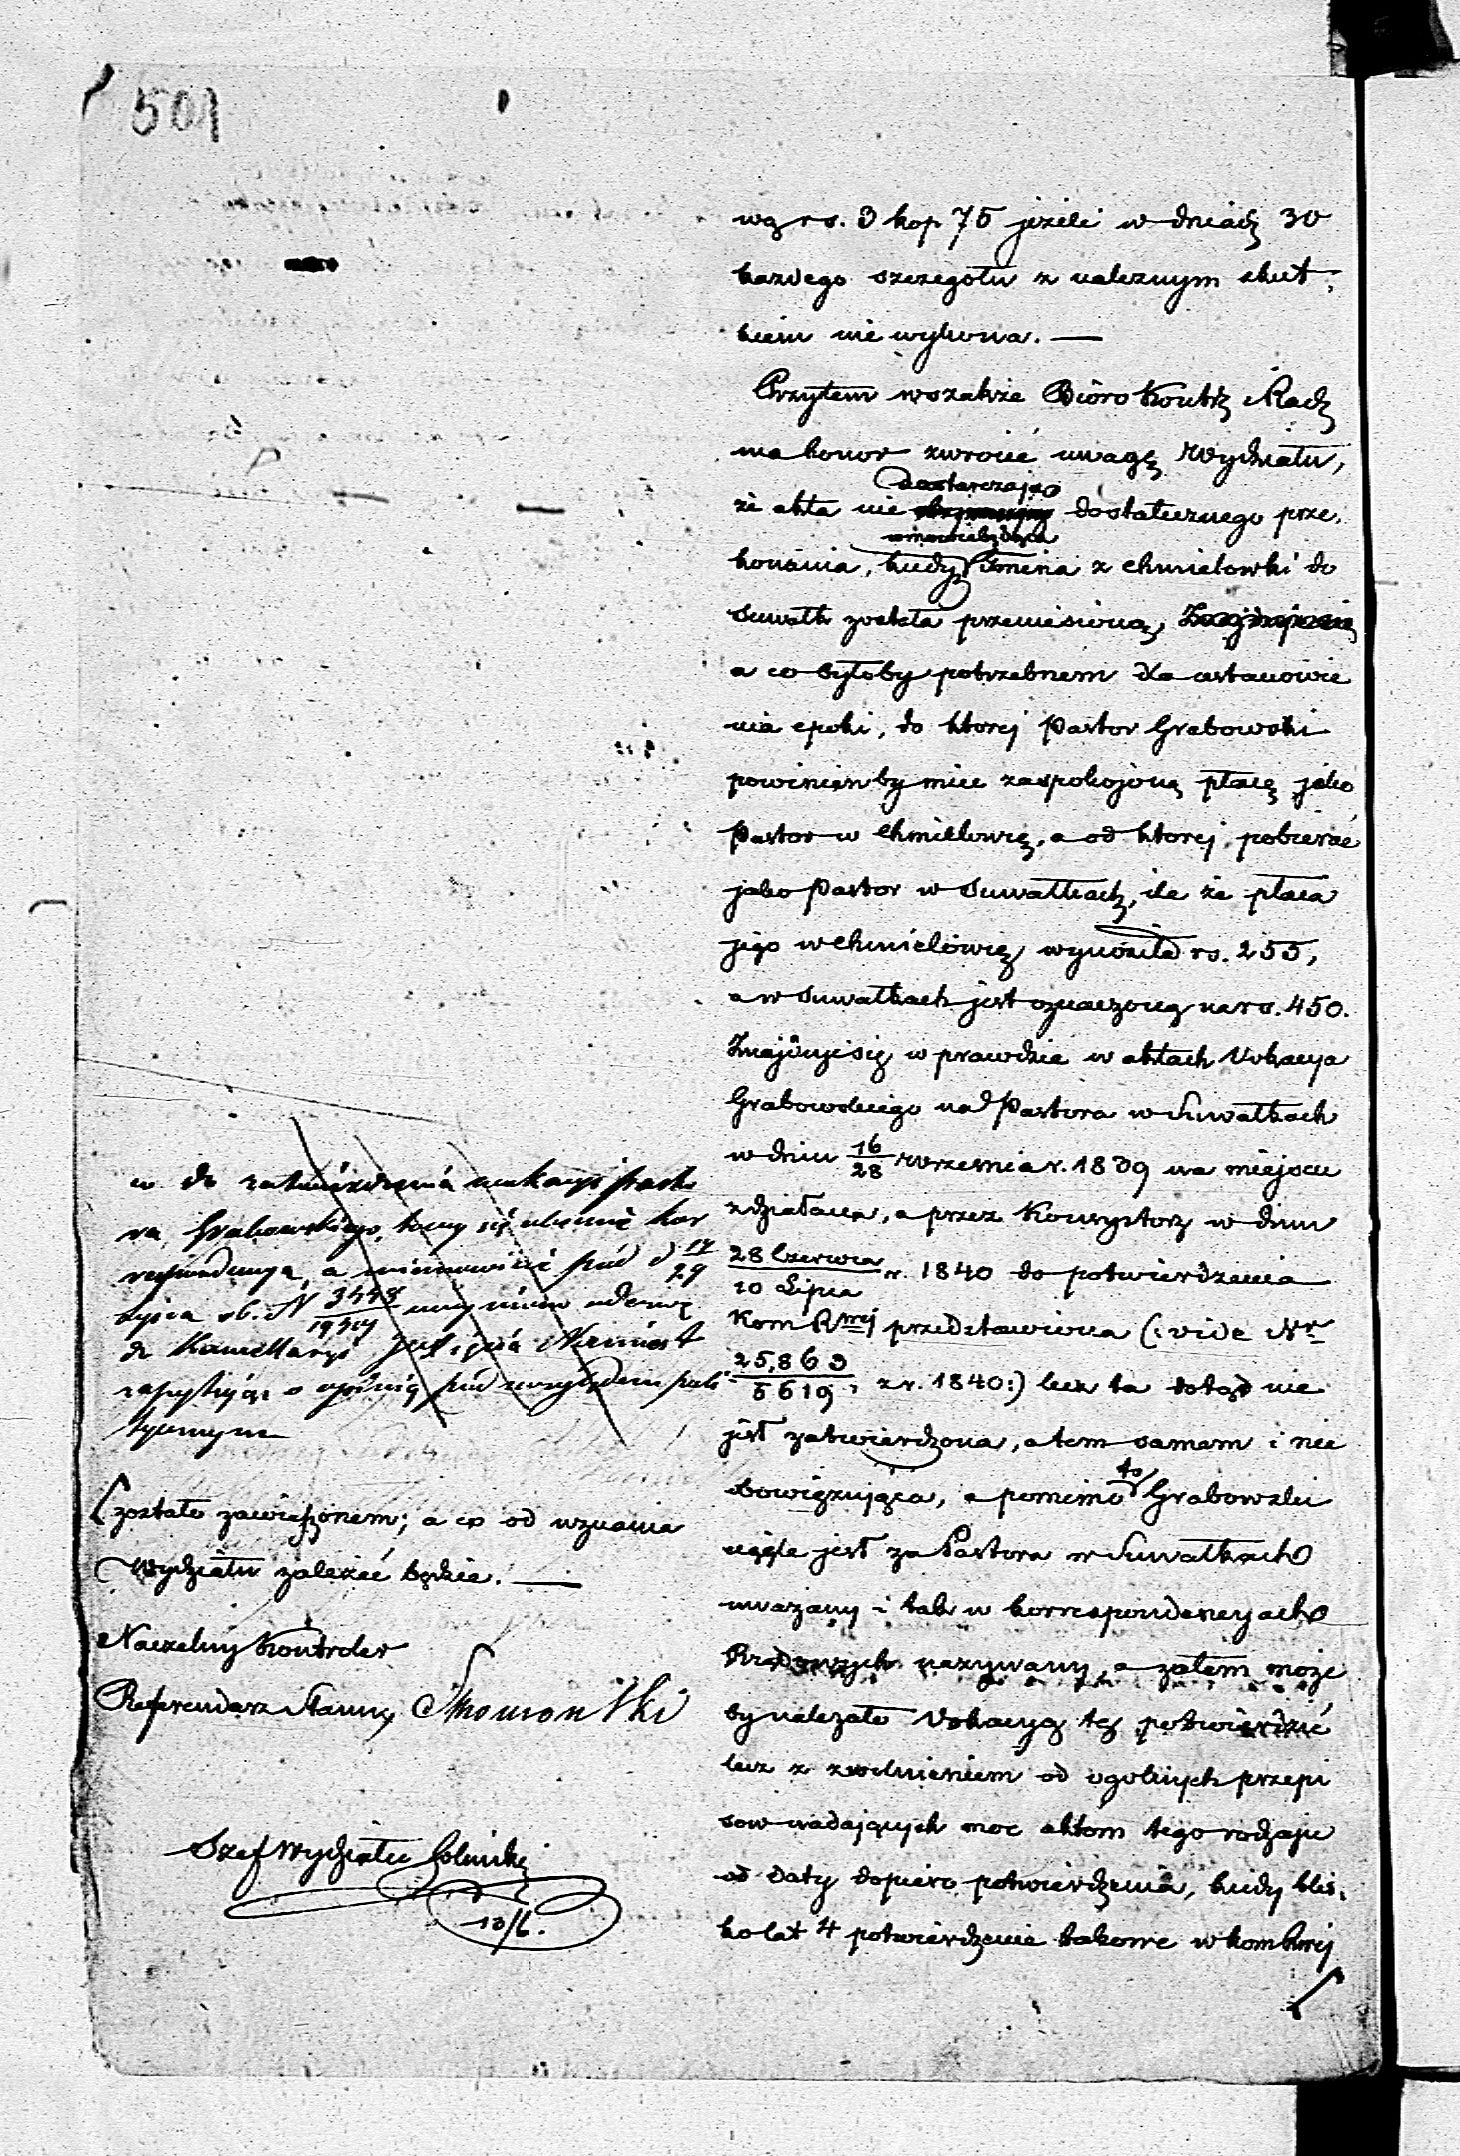 501
wą rs. 3 kop 75 jeżeli w dniach 30
każdego szczegółu z należnym skut-
kiem nie wykona. —
Przytem wszakże Bióro Kontr. i Rach
ma honor zwrócić uwagę Wydziału,
dostarczają
że akta nie dostatecznego prze-
konania, kiedy Gmina z Chmielówki do
Suwałk została przeniesioną,
a co byłoby potrzebnem dla ustanowie
nia epoki, do ktorej Pastor Grabowski
powinienby mieć zaspokojoną płacę jako
Pastor w Chmielówce, a od ktorej pobierać
jako Pastor w Suwałkach, ile że płaca
jego w Chmielówce wynosiła rs. 255,
a w Suwałkach jest oznaczoną na rs. 450.
Znajduje się w prawdzie w aktach Vokacya
Grabowskiego na Pastora w Suwałkach
w dniu 16/28 września r. 1839 na miejscu
zdziałana, a przez Konsystorz w dniu
28 Czerwca/10 Lipca r. 1840 do potwierdzenia
Kom Rwej przedstawiona (: vide Nr
25,863/5619, z r. 1840:) lecz ta dotąd nie
jest zatwierdzona, a tem samem i nie
obowiązująca, a pomimo to Grabowski
ciągle jest za Pastora w Suwałkach
uważany i tak w korrespondencyach
Rządowych nazywany, a zatem może
by należało Vokacyą tę potwierdzić
lecz z zwolnieniem od ogolnych przepi
sow nadających moc aktom tego rodzaju
od daty dopiero potwierdzenia, kiedy blis-
ko lat 4 potwierdzenie takowe w Kom Rwej
co do zatwierdzenia wokacyi Pasto
ra Grabowskiego, toczy się obecnie kor
respondencya, a mianowicie pod d 17/29
uczyniono odezwę
do Kancellaryi
o opinię pod względem poli
tycznym
zostało zawieszonem; a co od uznania
Wydziału zależeć będzie. —
Naczelny Kontroler
Referendarz Stanu
Szef Wydziału
10/6.